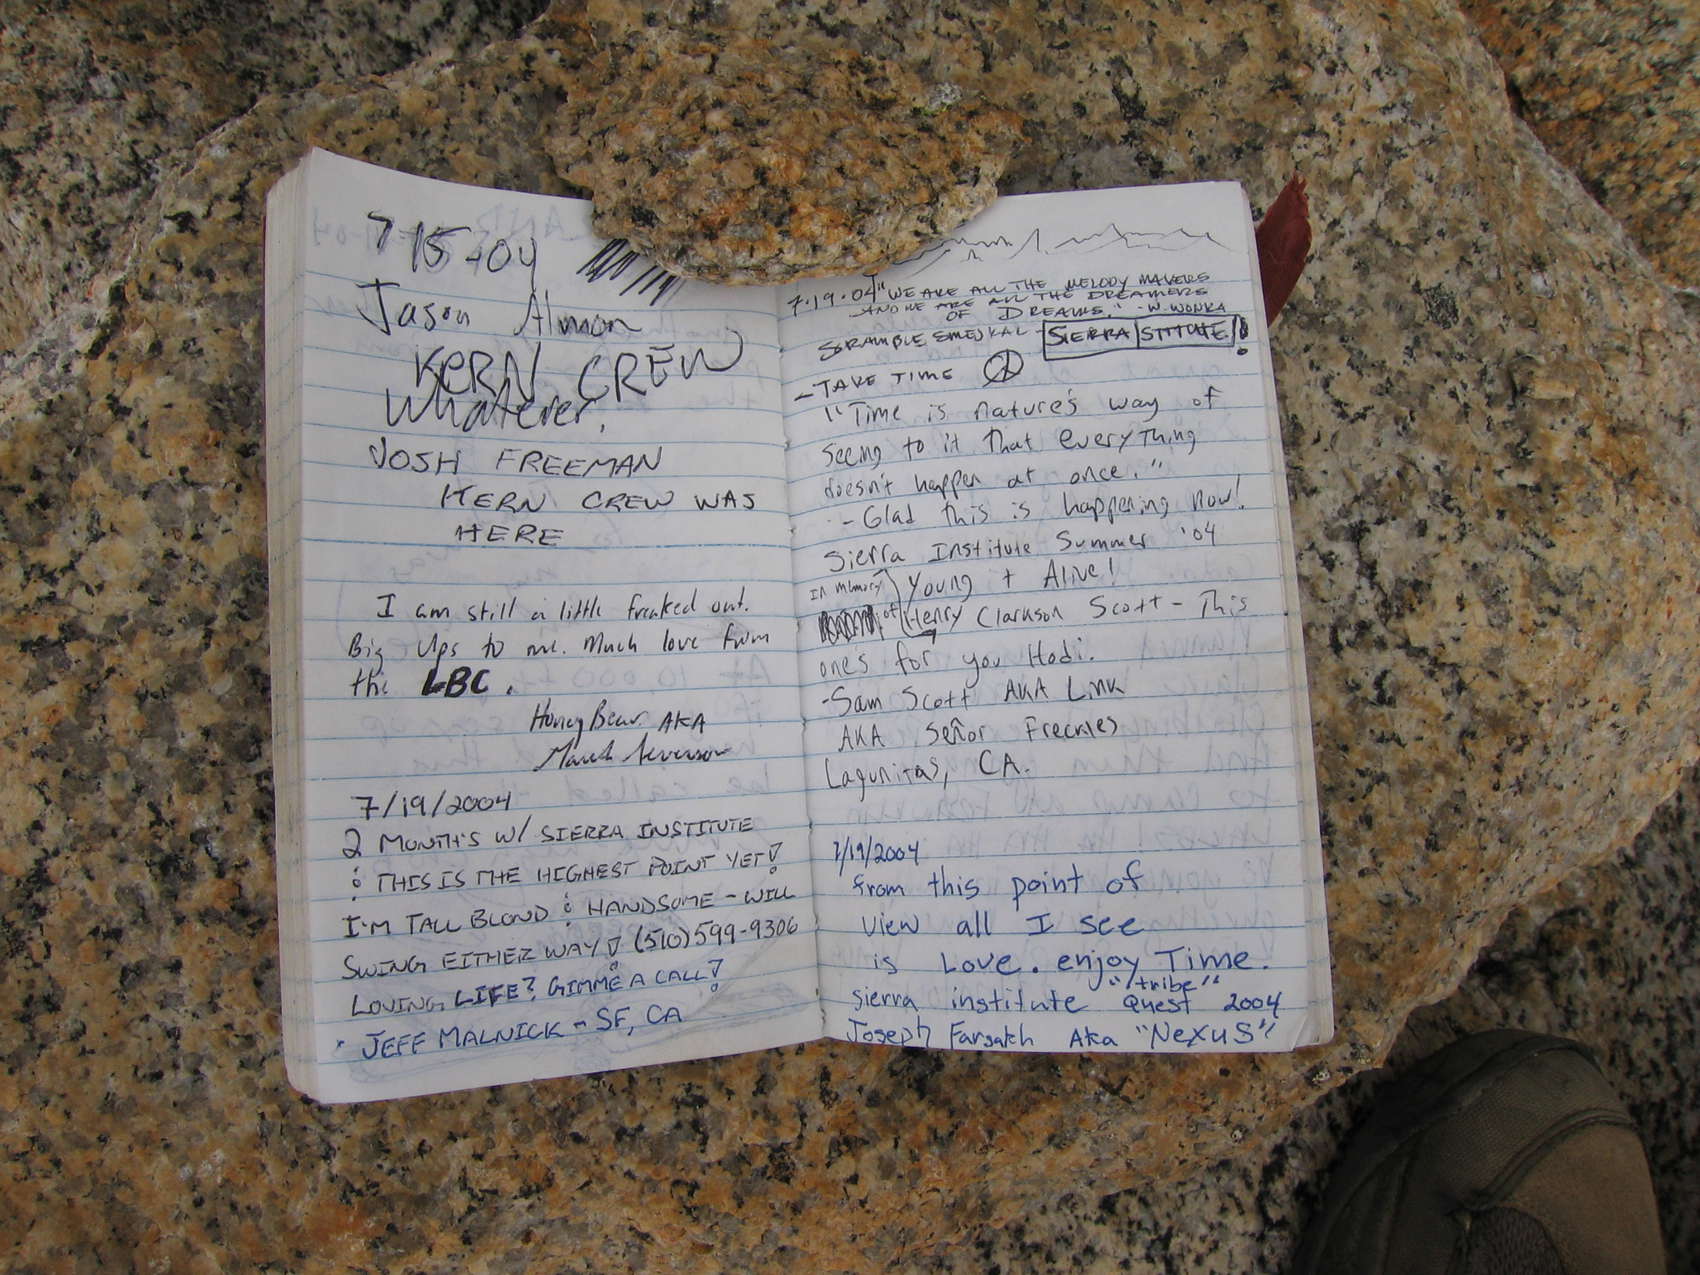 7 15-04
Jason Almon
KERN CREW
Whatever,
JOSH FREEMAN
KERN CREW WAS
HERE
I am still a little freaked out.
Big Ups to me. Much love from
the LBC.
Honey Bear AKA
7/19/2004
2 MONTHS W/ SIERRA INSTITUTE
& THIS IS THE HIGHEST POINT YET!
I'M TALL BLOND & HANDSOME - WILL
SWING EITHER WAY! (510) 599-9306
LOVING LIFE? GIMME A CALL!
JEFF MALNICK - SF, CA
7.19.04 "WE ARE ALL THE MELODY MAKERS
AND WE ARE ALL THE DREAMERS
OF DREAMS." -W. WONKA
SCRAMBLE SMEJKAL - SIERRA STITUTE!
- TAKE TIME
"Time is nature's way of
seeing to it that everything
doesn't happen at once."
- Glad this is happening now!
Sierra Institute Summer '04
Young + Alive!
In memory of Henry Clarkson Scott - This
ones for you Hodi.
-Sam Scott AKA Link
AKA Señor Freckles
Lagunitas, CA.
7/19/2004
from this point of
view all I see
is Love. enjoy Time.
Sierra institute "tribe" Quest 2004
Joseph Aka "NexuS"